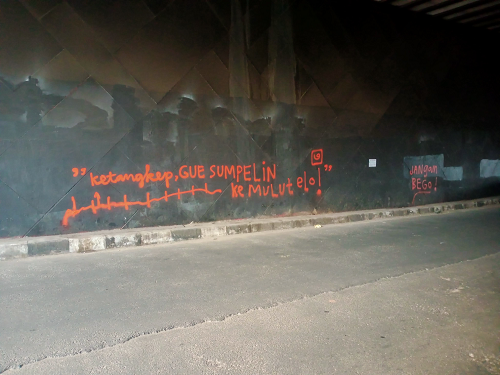 "ketangkep, GUE SUMPELiN
KE MULUT elo!"
JANGAN
BEGO!